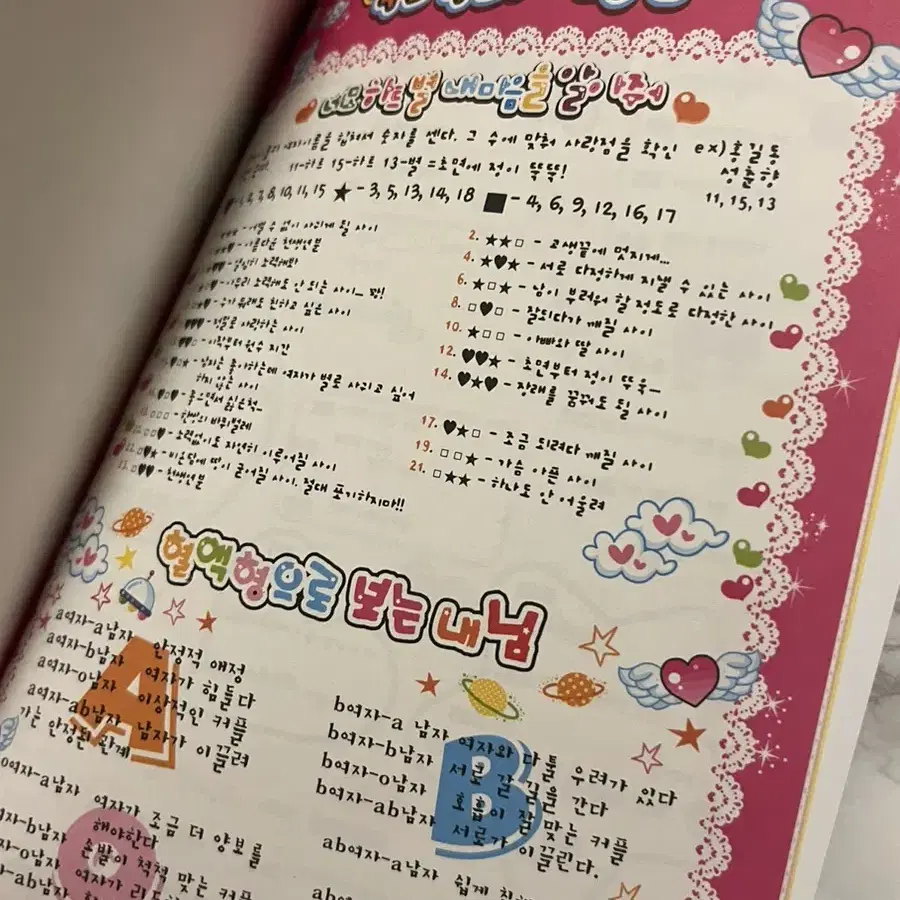 네모 하트 별 내마음을 알아줘
이름을 합쳐서 숫자를 센다. 그 수에 맞춰 사랑점을 확인 ex)홍길동
성춘향
11-하트 15-하트 13-별 =초면에 정이 뚝뚝!
11, 15, 13
7, 8, 10, 11, 15 ★ - 3, 5, 13, 14, 18 ■ - 4, 6, 9, 12, 16, 17
수 없이 사귀게 될 사이
♥ - 아름다운 천생연분
열심히 노력해봐!
아무리 노력해도 안 되는 사이... 꽝!
- 누가 뭐래도 친하고 싶은 사이
♥♥♥ - 정말로 사랑하는 사이
♥□ - 시작부터 원수 지간
★ - 남자는 좋아하는데 여자가 별로 사귀고 싶어
하지 않는 사이
- 좋으면서 싫은척...
□□□ - 한쌍의 바퀴벌레
- 노력없이도 자연히 이루어질 사이
- 비온담에 땅이 굳어질 사이. 절대 포기하지마!!
□♥♥ - 천생연분
2. ★★□ - 고생끝에 멋지게...
4. ★♥★ - 서로 다정하게 지낼 수 있는 사이
6. ★□★ - 남이 부러워 할 정도로 다정한 사이
8. □♥□ - 잘되다가 깨질 사이
10. ★□□ - 아빠와 딸 사이
12. ♥♥★ - 초면부터 정이 뚜욱-
14. ♥★♥ - 장래를 꿈꿔도 될 사이
17. ♥★□ - 조금 되려다 깨질 사이
19. □□★ - 가슴 아픈 사이
21. □★★ - 하나도 안 어울려
혈액형으로 보는 내님
A
a여자-a남자 안정적 애정
a여자-b남자 여자가 힘들다
a여자-o남자 이상적인 커플
a여자-ab남자 남자가 이끌려
가는 안정된 관계
B
b여자-a 남자 여자와 다툴 우려가 있다
b여자-b남자 서로 갈 길을 간다
b여자-o남자 호흡이 잘 맞는 커플
b여자-ab남자 서로가 이끌린다.
o여자-a남자 여자가 조금 더 양보를
해야한다
-b남자 손발이 척척 맞는 커플
-o남자 여자가
-ab남자
ab여자-a남자 쉽게